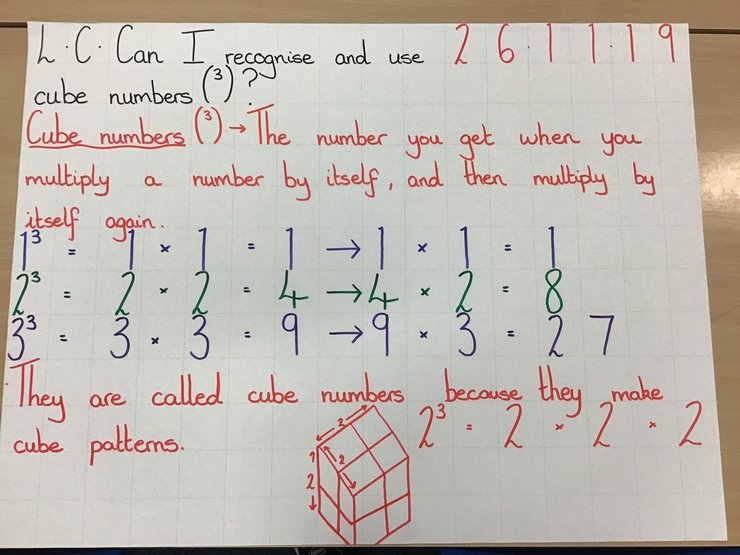 L.C. Can I recognise and use 26.11.19
cube numbers (³)?
Cube numbers (³) → The number you get when you
multiply a number by itself, and then multiply by
itself again.
1³ = 1 × 1 = 1 → 1 × 1 = 1
2³ = 2 × 2 = 4 → 4 × 2 = 8
3³ = 3 × 3 = 9 → 9 × 3 = 27
They are called cube numbers because they make
cube patterns. 2³ = 2 × 2 × 2
2
2
2